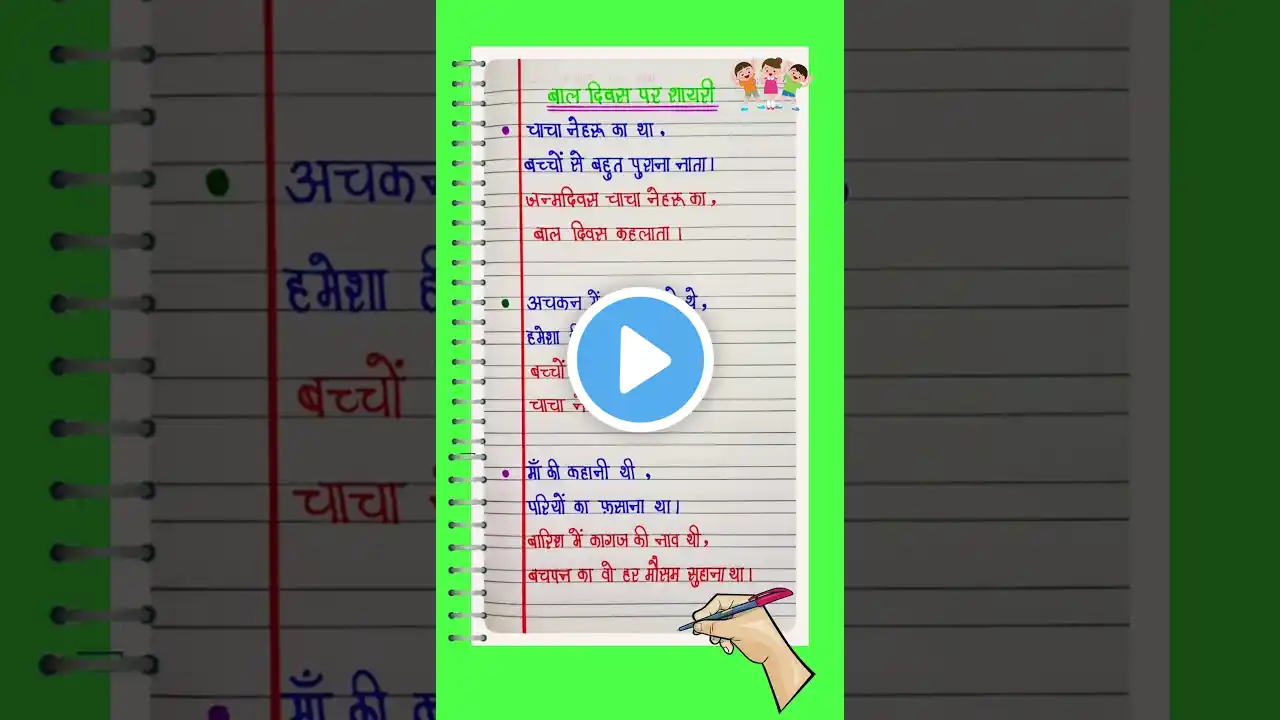 बाल दिवस पर शायरी
चाचा नेहरू का था,
बच्चों से बहुत पुराना नाता।
जन्मदिवस चाचा नेहरू का,
बाल दिवस कहलाता।
अचकन में थे,
हमेशा
बच्चों
चाचा
माँ की कहानी थी,
परियों का फ़साना था।
बारिश में कागज की नाव थी,
बचपन का वो हर मौसम सुहाना था।
अचकन
हमेशा
बच्चों
चाचा
माँ की